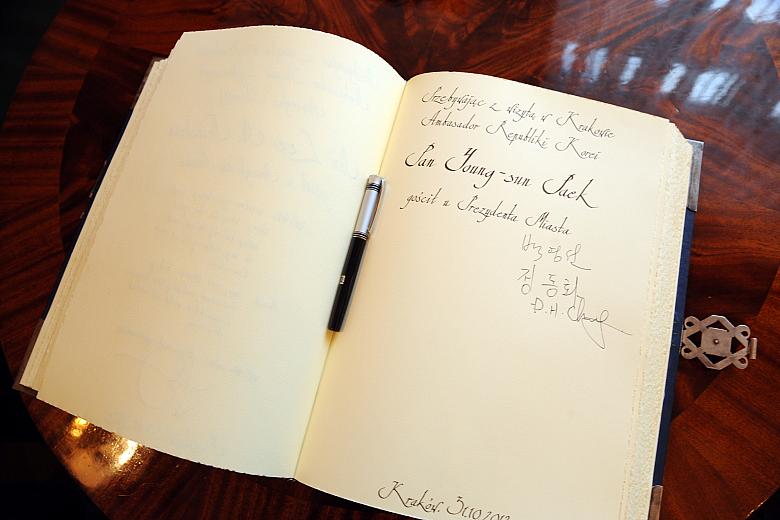 Przebywając z wizytą w Krakowie
Ambasador Republiki Korei
Pan Young-sun Paek
gościł u Prezydenta Miasta
백영선
정동화
D.H. Chung
Kraków, 31.10.2012